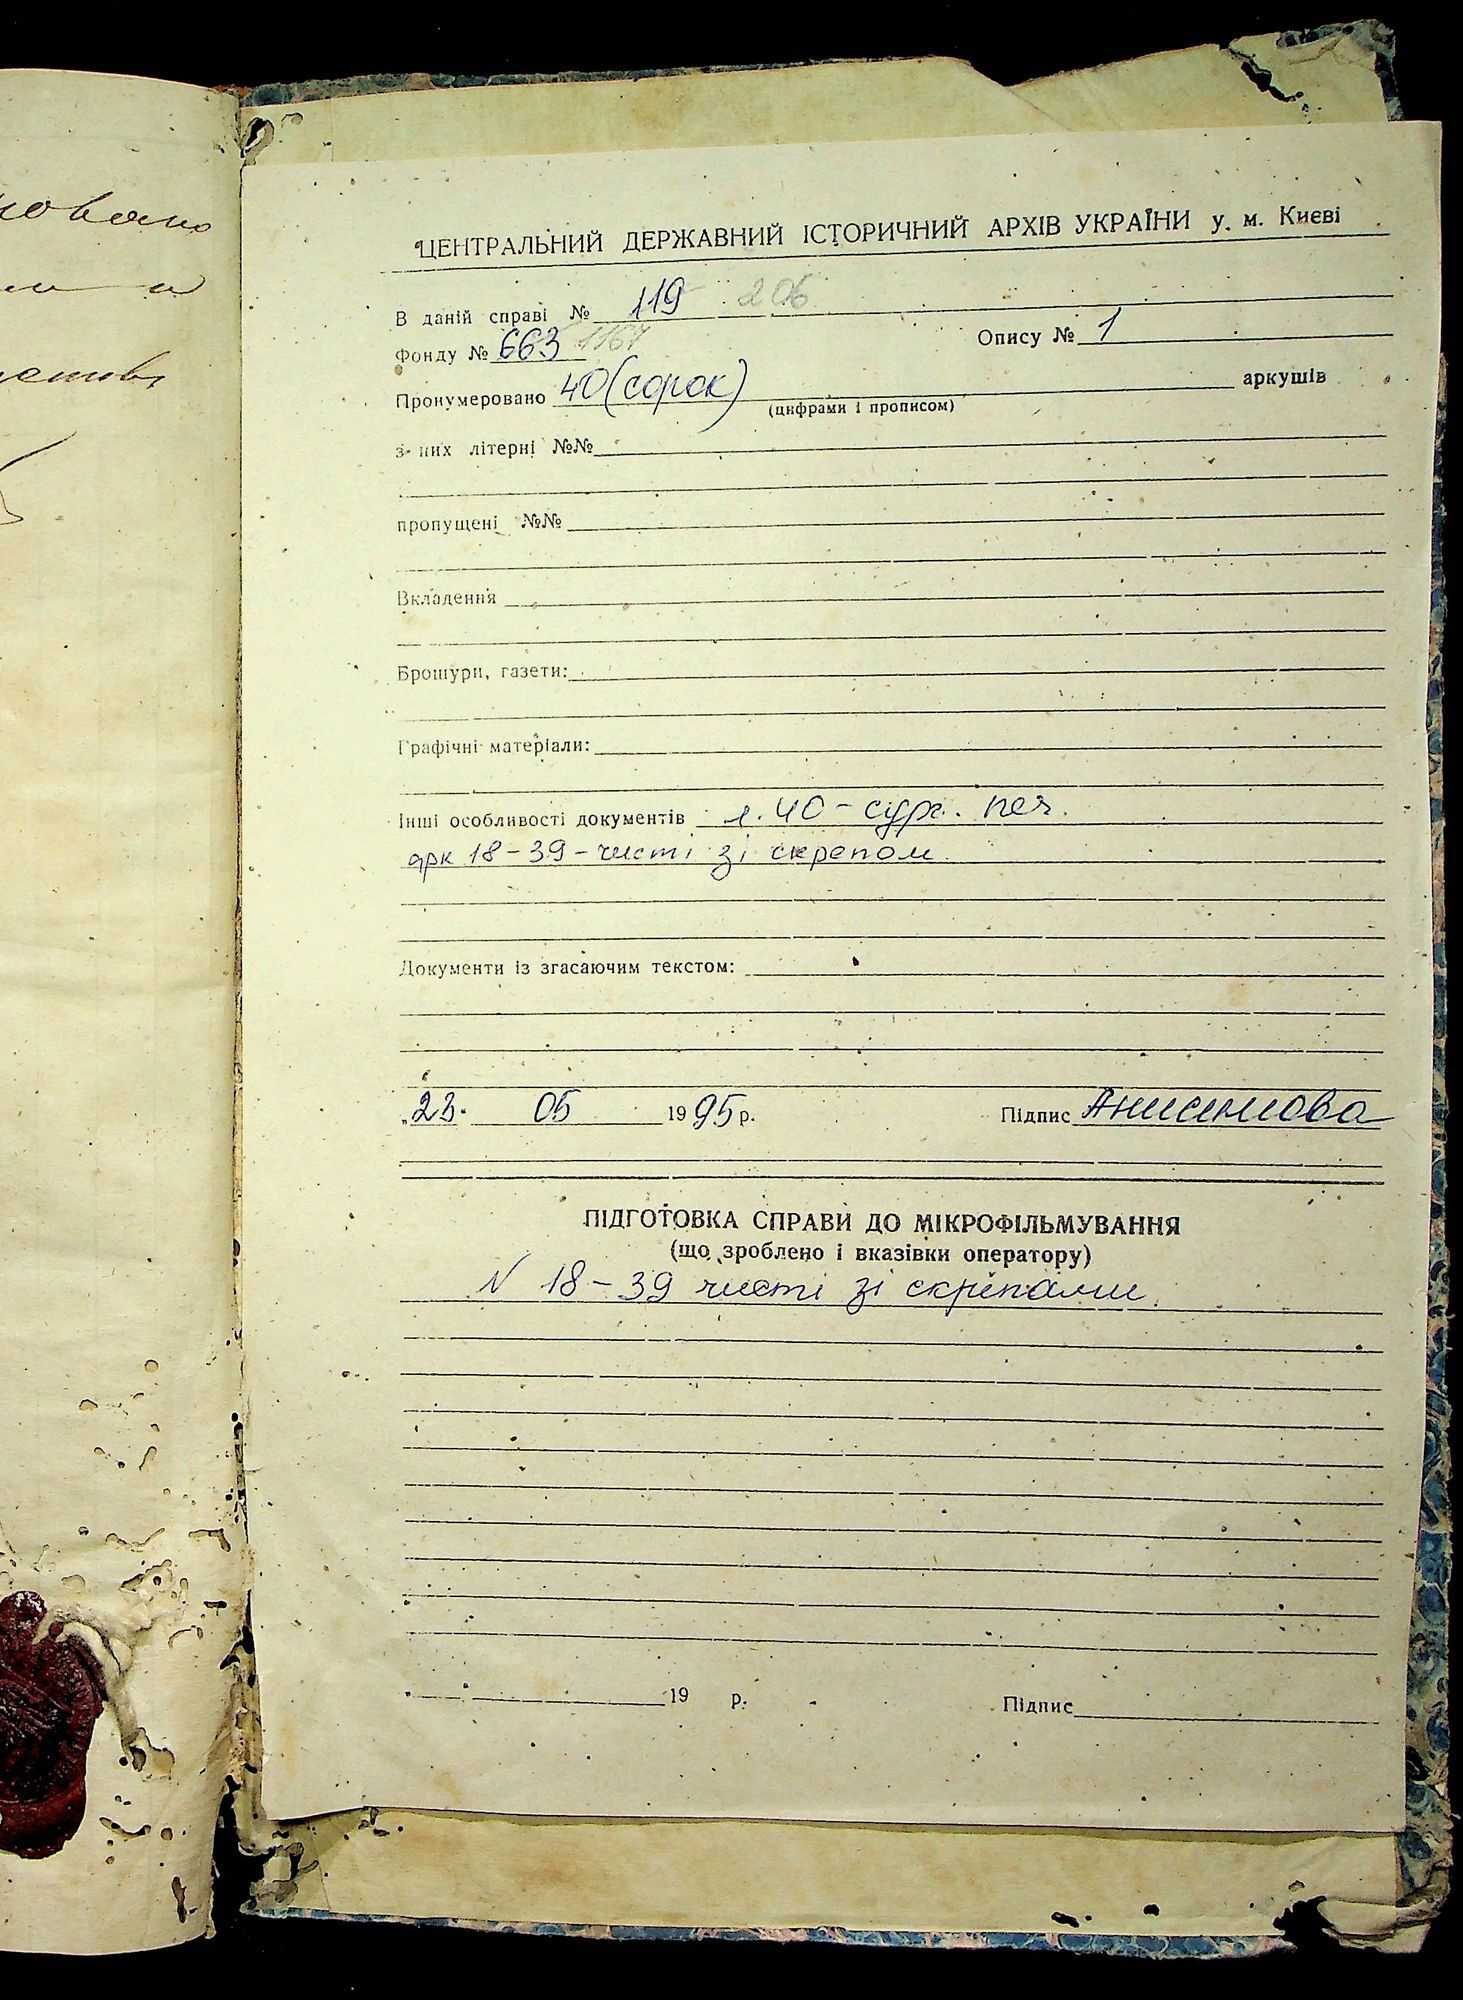 ЦЕНТРАЛЬНИЙ ДЕРЖАВНИЙ ІСТОРИЧНИЙ АРХІВ УКРАЇНИ у. м. Києві
В даній справі № 119 206
Фонду № 663 1167 Опису № 1
Пронумеровано 40 (сорок) аркушів
(цифрами і прописом)
з них літерні №№
пропущені №№
Вкладення
Брошури, газети:
Графічні матеріали:
Інші особливості документів л. 40 – сург. печ.
арк 18 – 39 – чисті зі скрепом
Документи із згасаючим текстом:
„23. 05 1995 р. Підпис Анисимова
ПІДГОТОВКА СПРАВИ ДО МІКРОФІЛЬМУВАННЯ
(що зроблено і вказівки оператору)
N 18 – 39 чисті зі скріпами
19 р. Підпис